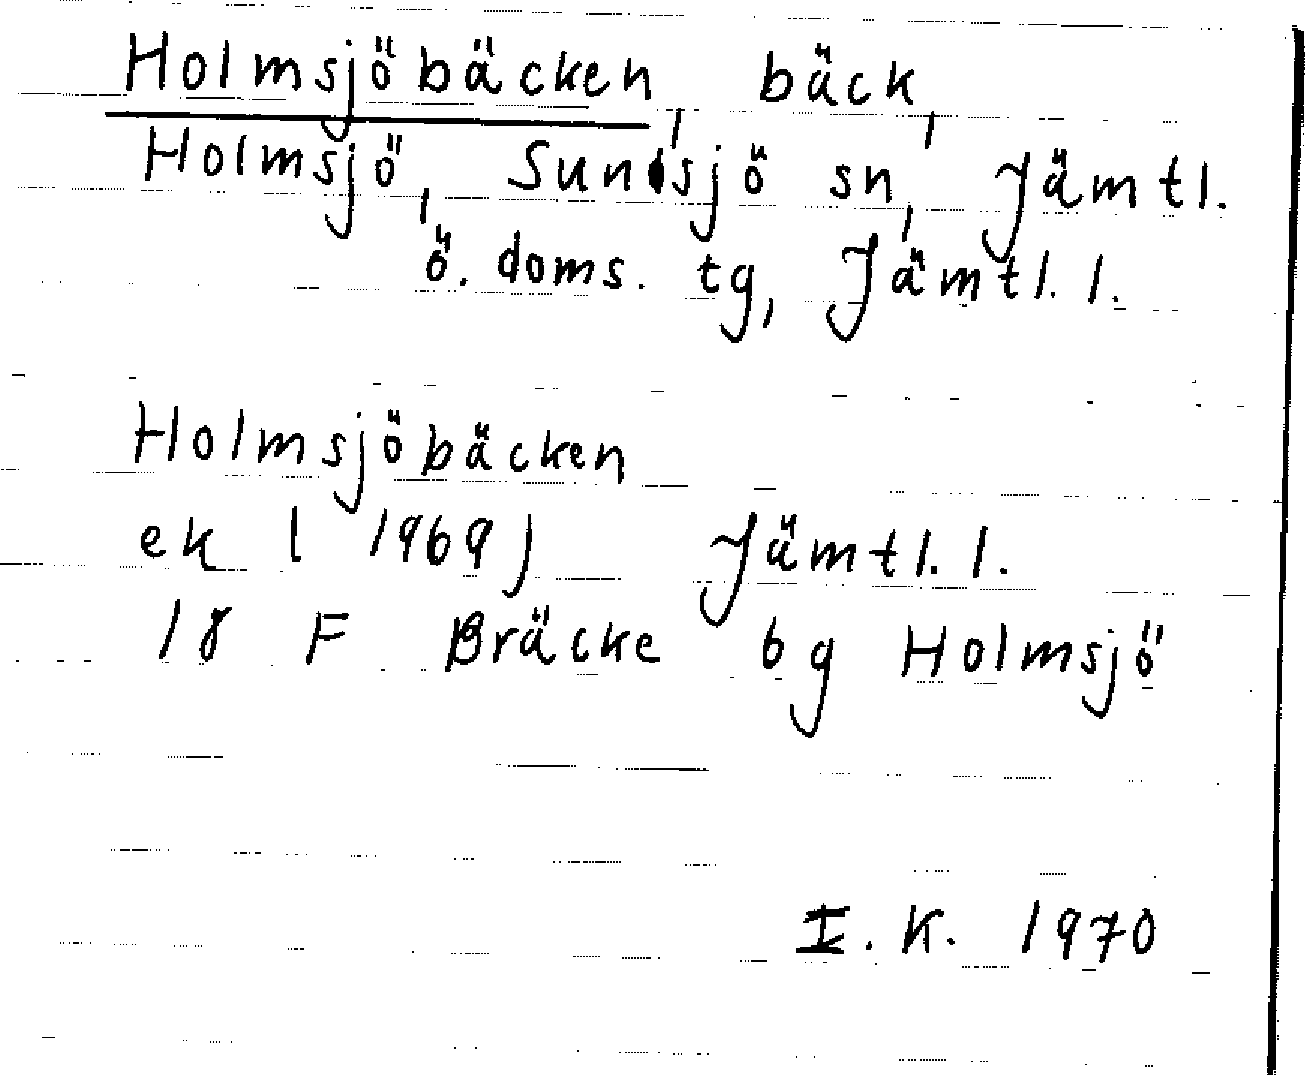 Holmsjöbäcken, bäck,
Holmsjö, Sunsjö sn, Jämtl.
ö. doms. tg, Jämtl. l.
Holmsjöbäcken
ek ( 1969 ) Jämtl. l.
18 F Bräcke 6g Holmsjö
I. K. 1970